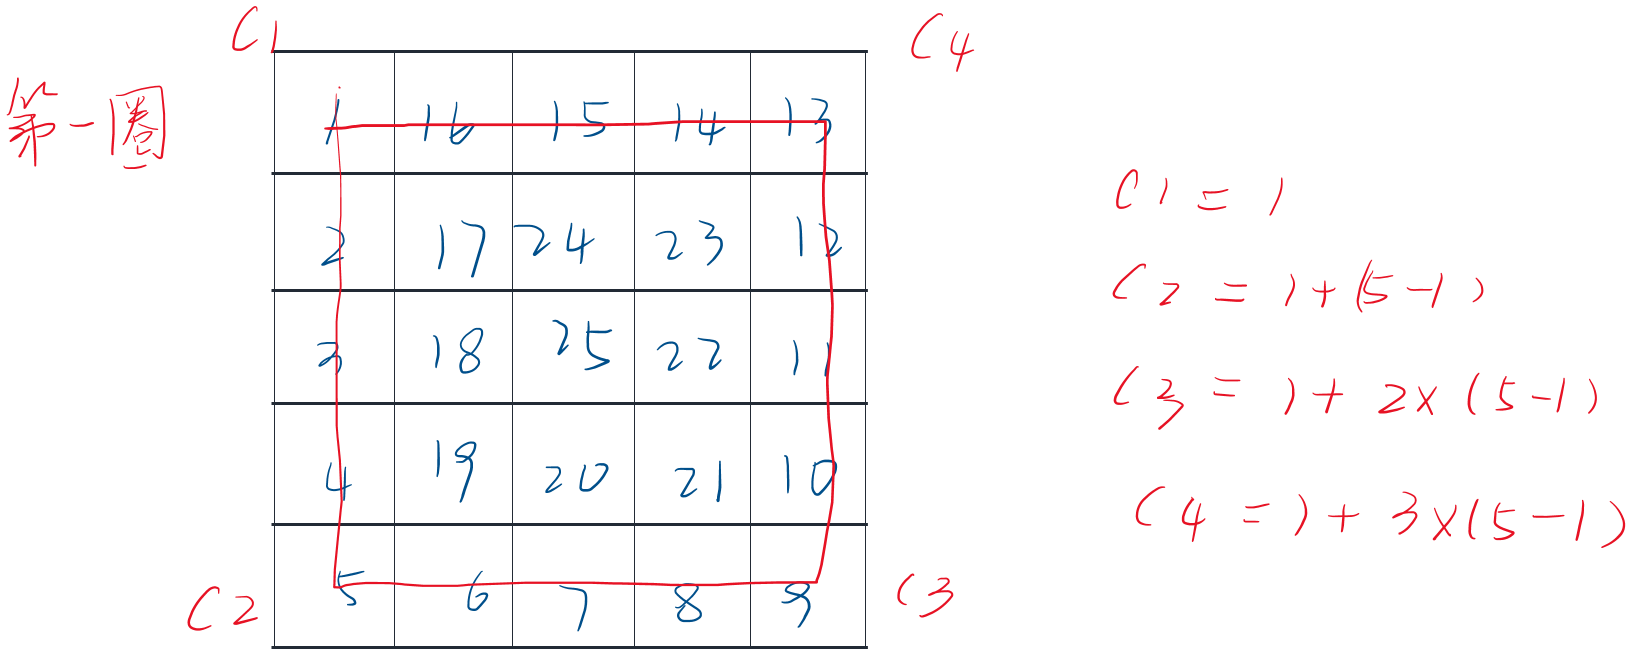 C1
C4
第一圈
1 16 15 14 13
2 17 24 23 12
3 18 25 22 11
4 19 20 21 10
5 6 7 8 9
C2
C3
C1 = 1
C2 = 1+(5-1)
C3 = 1+ 2×(5-1)
C4 = 1+ 3×(5-1)